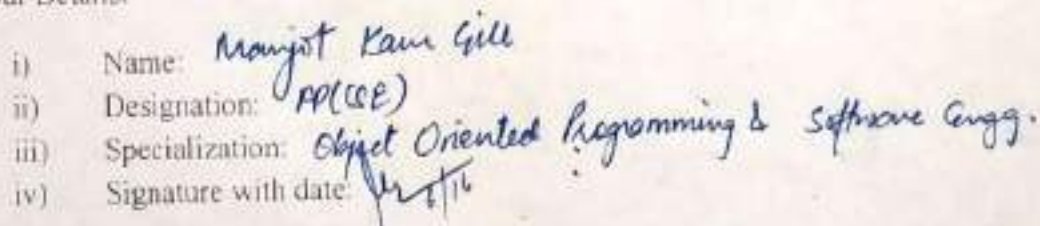 Details:
i) Name: Manjot Kaur Gill
ii) Designation: AP(CSE)
iii) Specialization: Object Oriented Programming & Software Engg.
iv) Signature with date: